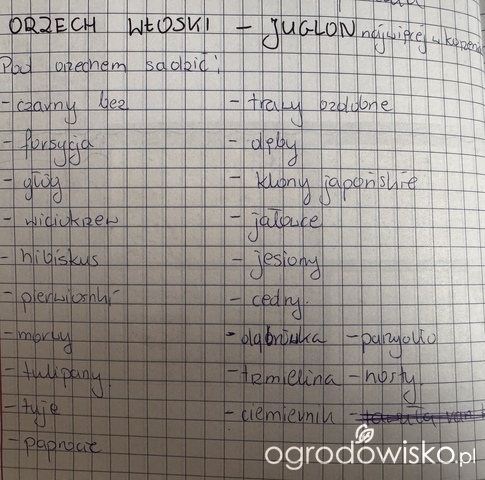 ORZECH WŁOSKI - JUGLON najwięcej w korzeniach
Pod orzechem sadzić:
- czarny bez
- forsycja
- głóg
- wiciokrzew
- hibiskus
- pierwiosnki
- morwy
- tulipany.
- tuje
- paprocie
- trawy ozdobne
- dęby
- klony japońskie
- jałowce
- jesiony
- cedry.
- dąbrówka - parzydło
- trzmielina - hosty.
- ciemiernik -
ogrodowisko.pl